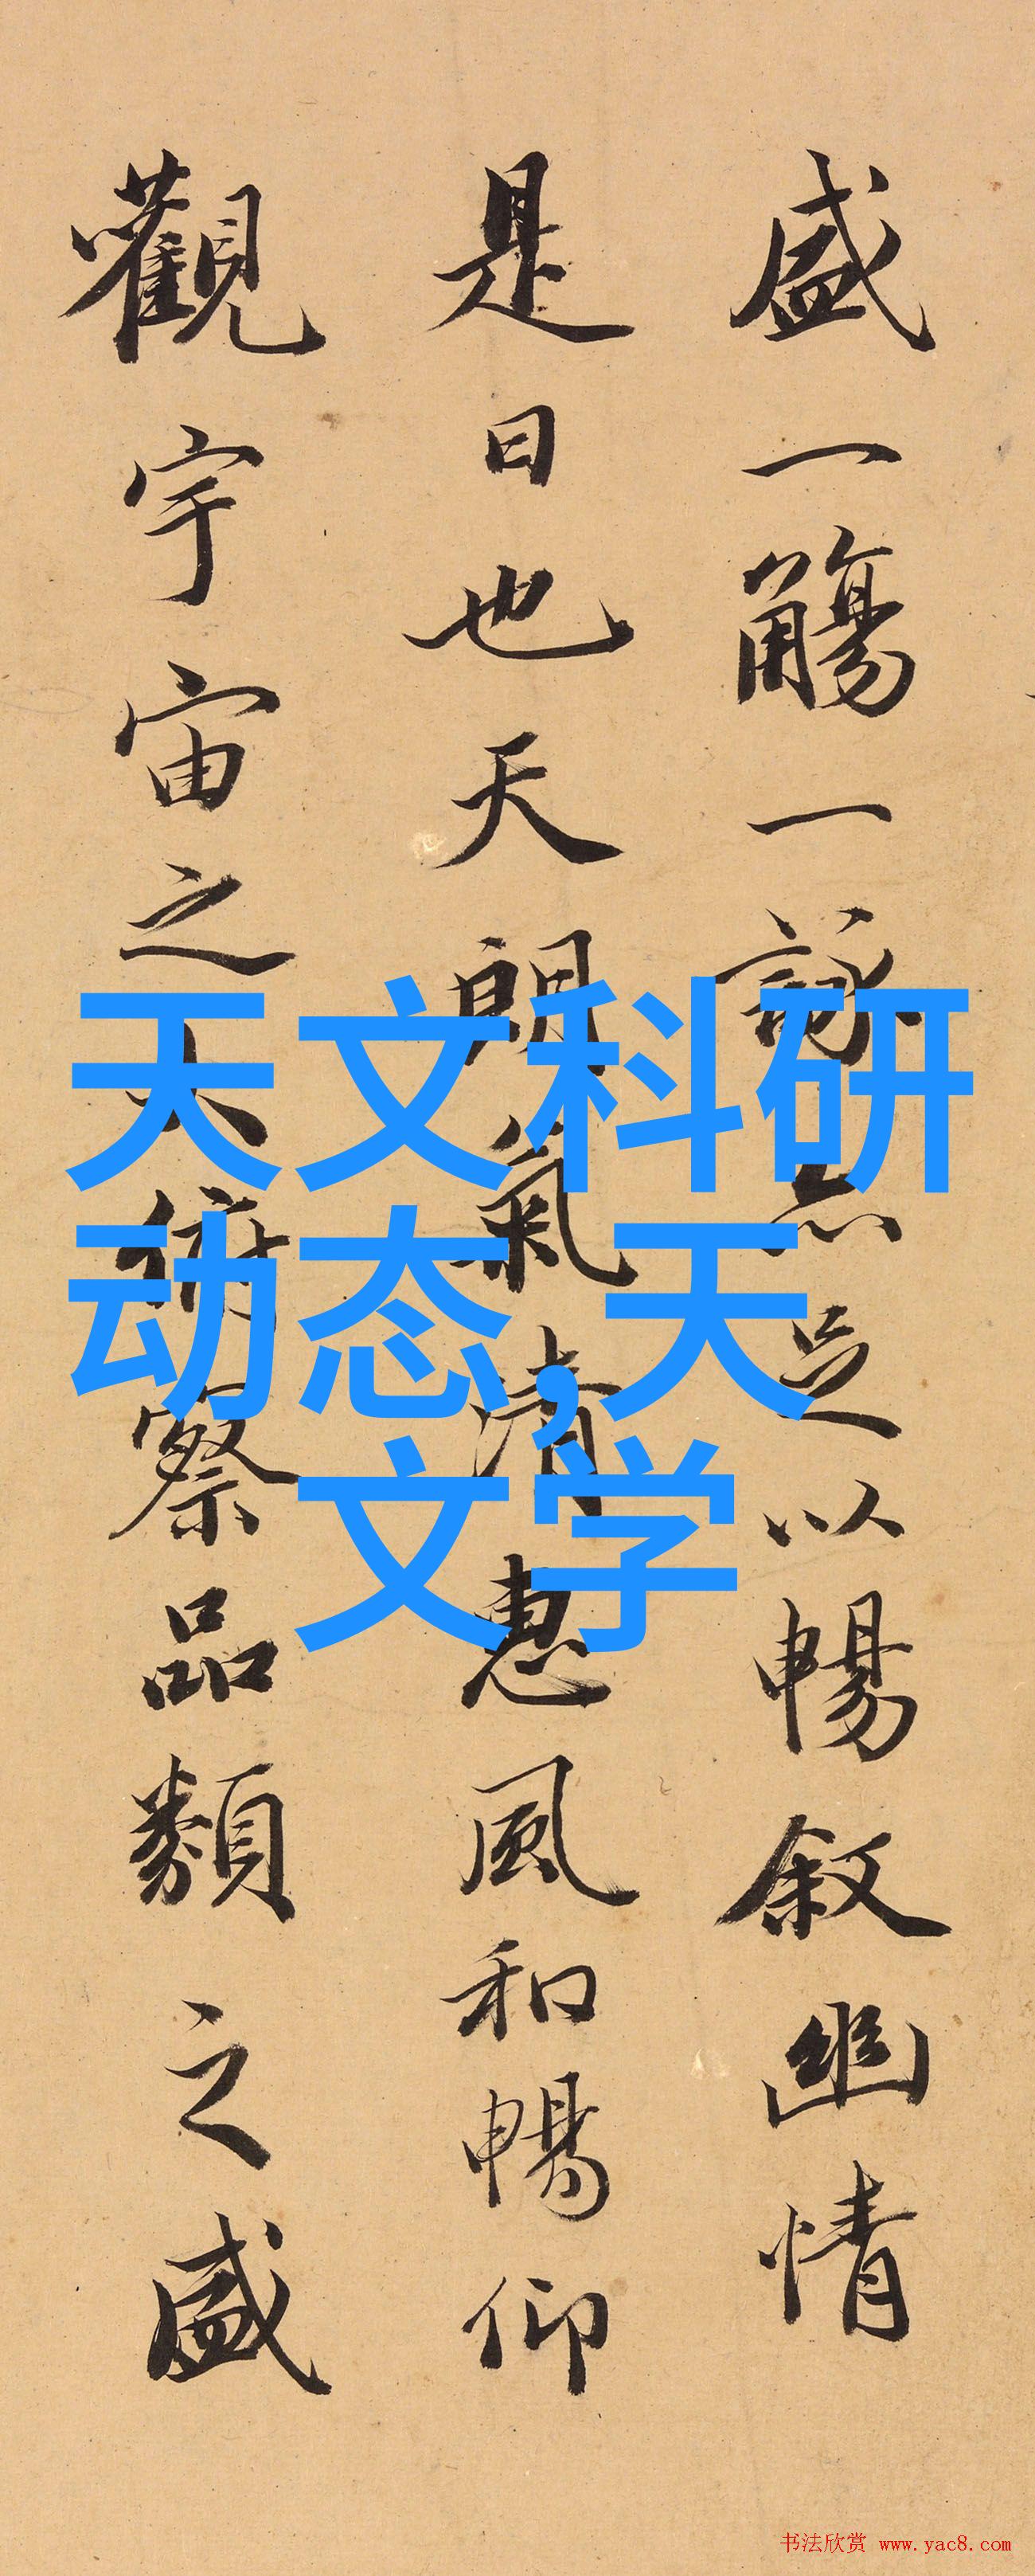 盛一觴一詠亦足以暢叙幽情
是日也天朗氣清惠風和暢仰
觀宇宙之大俯察品類之盛
天文科研
动态,天
文学
书法欣赏 www.yac8.com